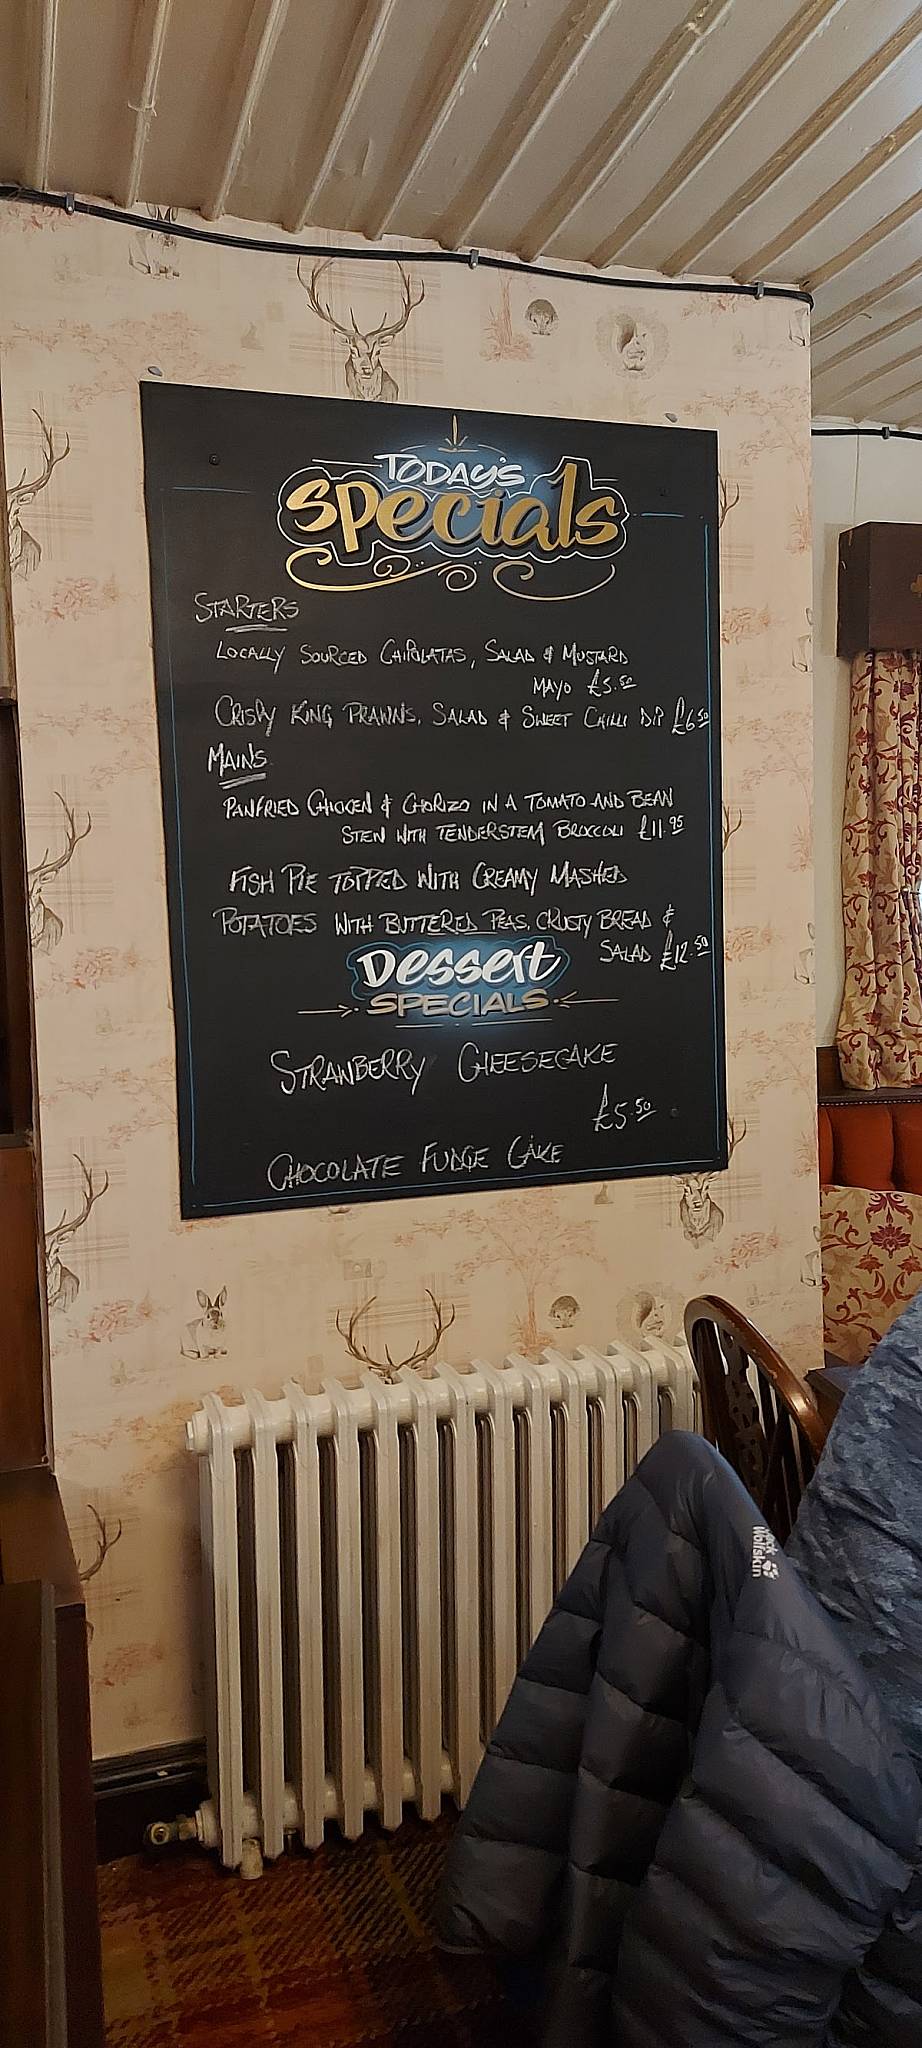 TODAY'S
specials
STARTERS
LOCALLY SOURCED CHIPOLATAS, SALAD & MUSTARD
MAYO £5.50
CRISPY KING PRAWNS, SALAD & SWEET CHILLI DIP £6.50
MAINS
PANFRIED CHICKEN & CHORIZO IN A TOMATO AND BEAN
STEW WITH TENDERSTEM BROCCOLI £11.95
FISH PIE TOPPED WITH CREAMY MASHED
POTATOES WITH BUTTERED PEAS, CRUSTY BREAD &
SALAD £12.50
Dessert
SPECIALS
STRAWBERRY CHEESECAKE
£5.50
CHOCOLATE FUDGE CAKE
Jack
Wolfskin